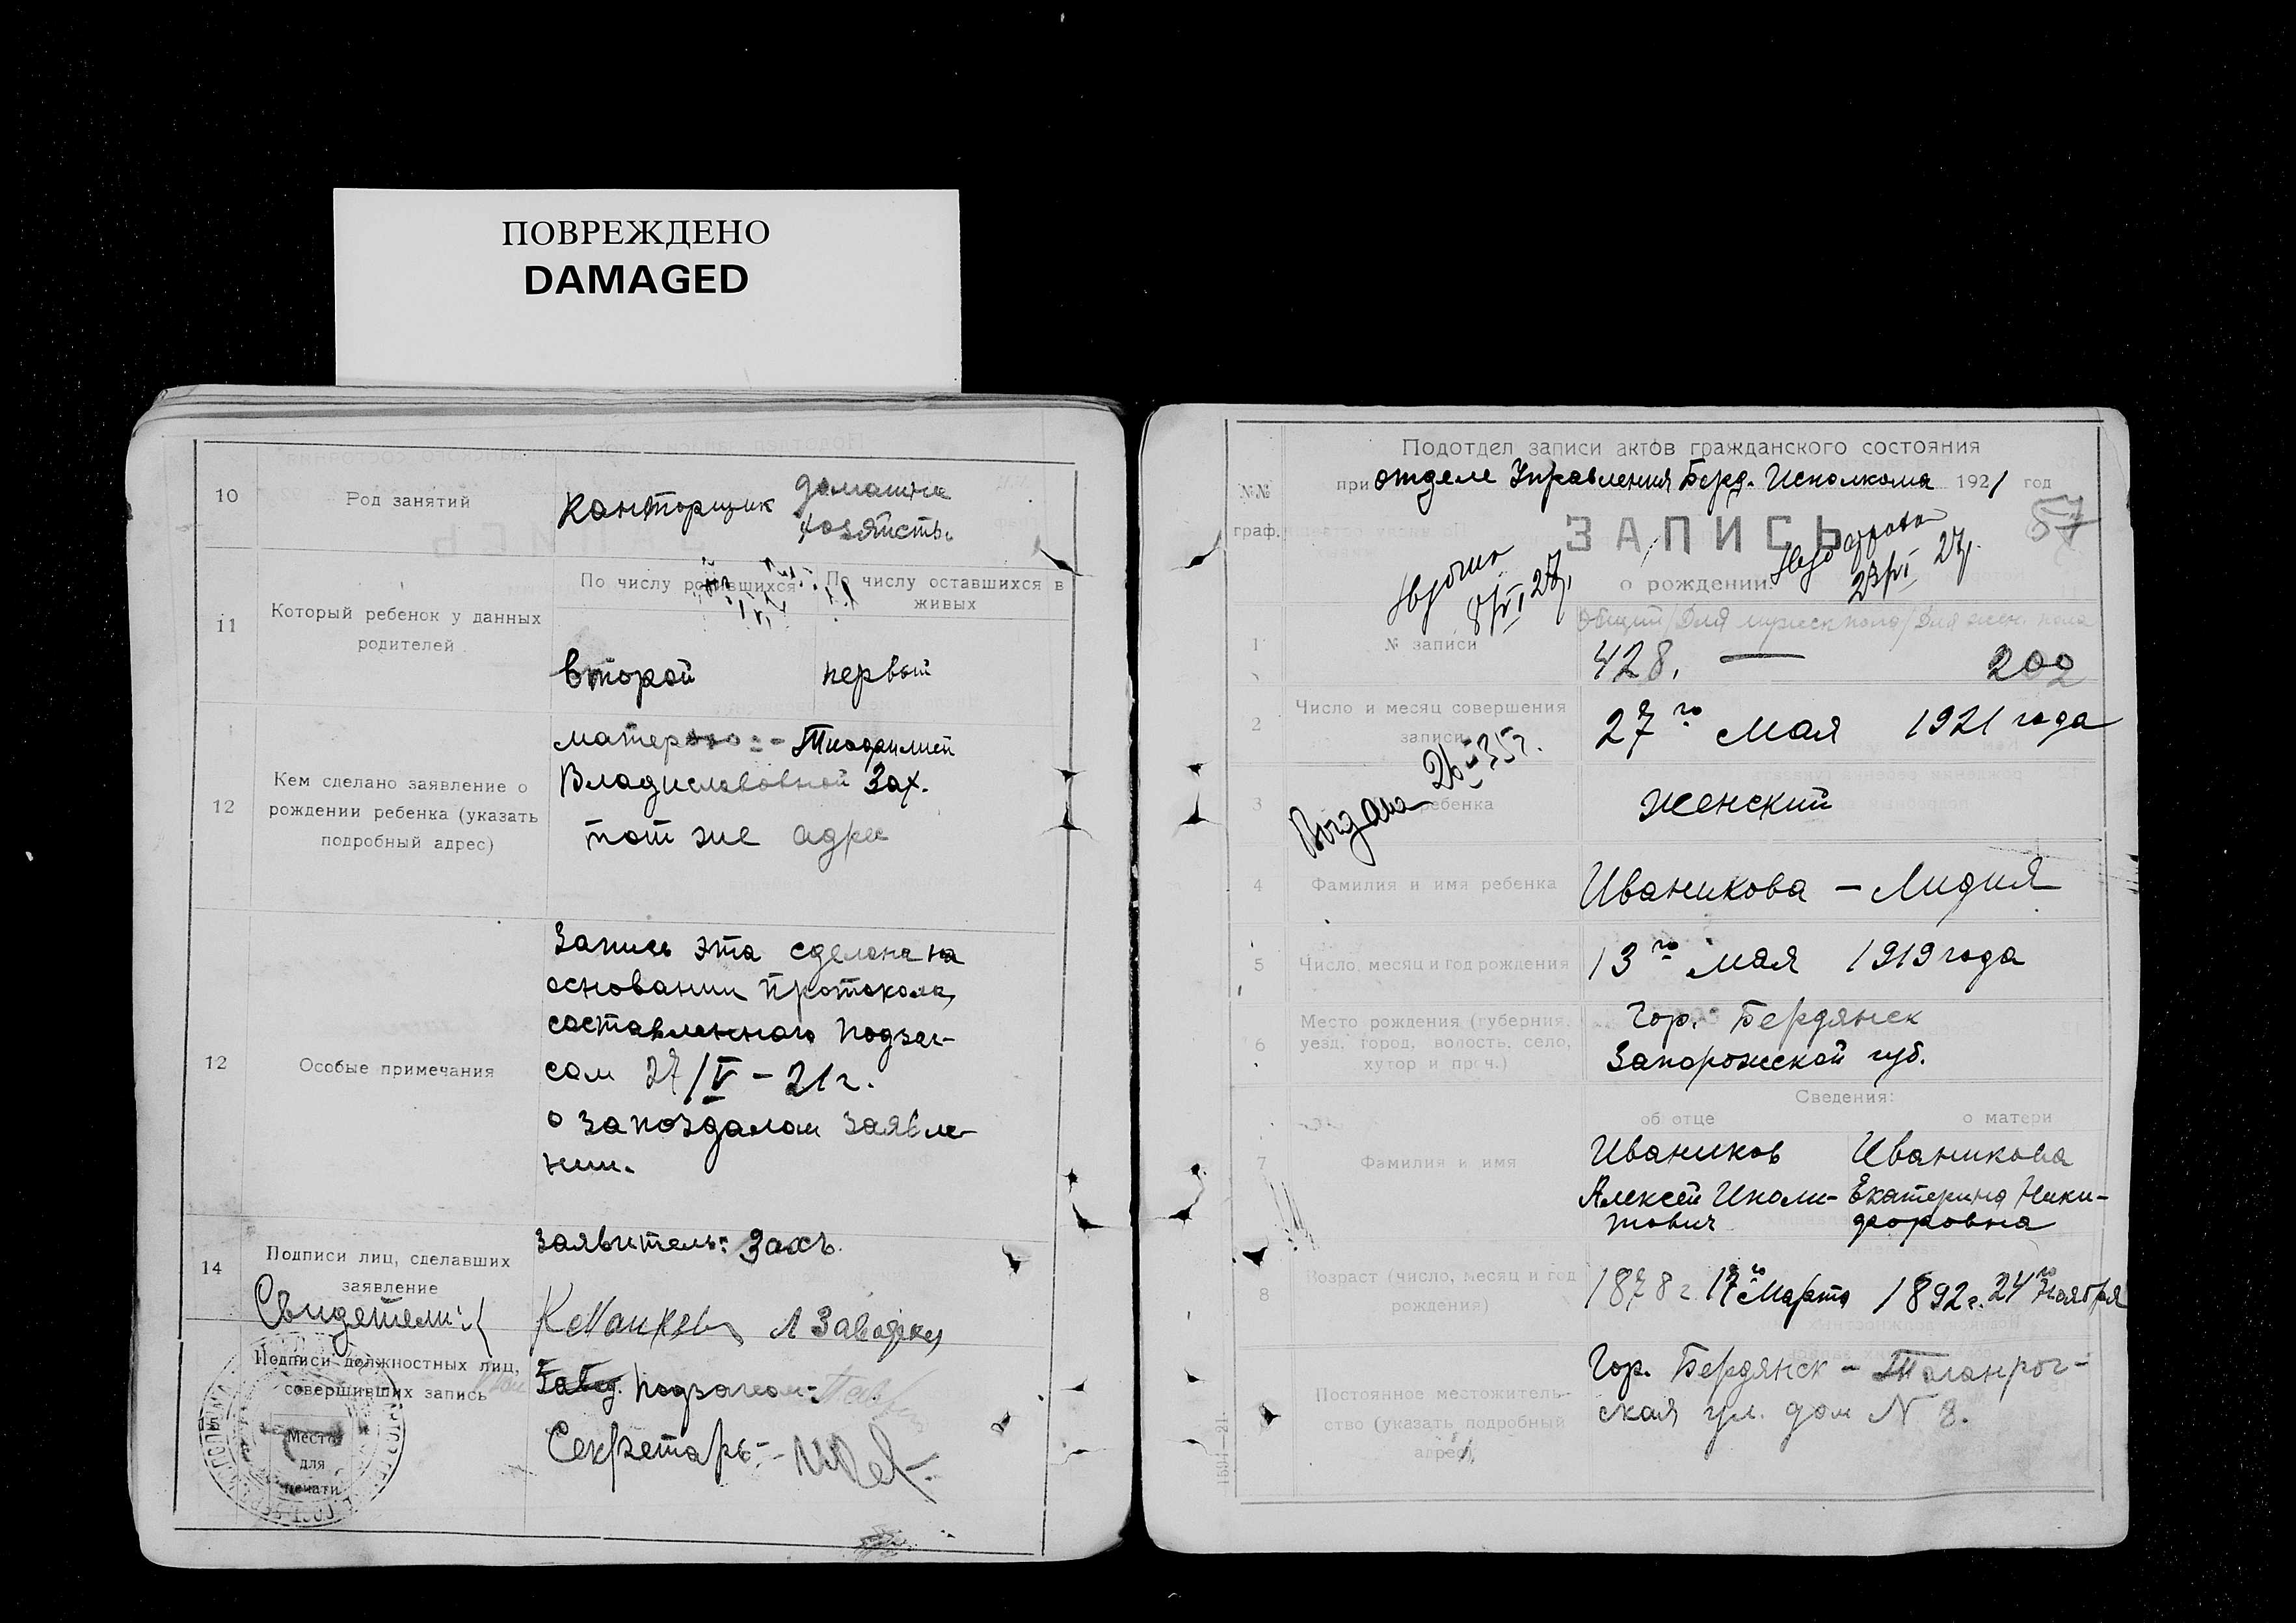 ПОВРЕЖДЕНО
DAMAGED
10
Род занятий
Канторщик
домашнее
хозяйств.
11
Который ребенок у данных
родителей
По числу родившихся
По числу оставшихся в
живых
второй
первый
12
Кем сделано заявление о
рождении ребенка (указать
подробный адрес)
матер
Владиславовной Зах.
тот же адрес
12
Особые примечания
Запись эта сделана на
основании протокола,
составленного подзаг-
сом 27/V - 21 г.
о запоздалом заявле-
нии.
14
Подписи лиц, сделавших
заявление
заявитель: Захъ.
Свидетели:
Подписи должностных лиц,
совершивших запись
15
Место
для
печати
Завед. подзагсом-
Секретарь:-
Подотдел записи актов гражданского состояния
№№
граф.
при отделе Управления Берд. Исполкома 1921 год
57
ЗАПИСЬ
о рождении.
27г.
23/VI 27г.
Общий / Для мужск пола / Для жен. пола
1
№ записи
428. — 202
2
Число и месяц совершения
записи
27го Мая 1921 года
Выдана 26 35г.
3
ребенка
Женский
4
Фамилия и имя ребенка
Иваникова - Лидия
5
Число, месяц и год рождения
13го Мая 1919 года
6
Место рождения (губерния,
уезд, город, волость, село,
хутор и проч.)
Гор. Бердянск
Запорожской губ.
Сведения:
об отце
о матери
7
Фамилия и имя
Иваников
Алексей Иполи-
тович
Иваникова
Екатерина Ники-
форовна
8
Возраст (число, месяц и год
рождения)
1878 г. 17го Марта
1892 г. 24го Ноября
9
Постоянное местожитель-
ство (указать подробный
адрес)
Гор. Бердянск - Таганрог-
ская ул. дом N 8.
1591—21.